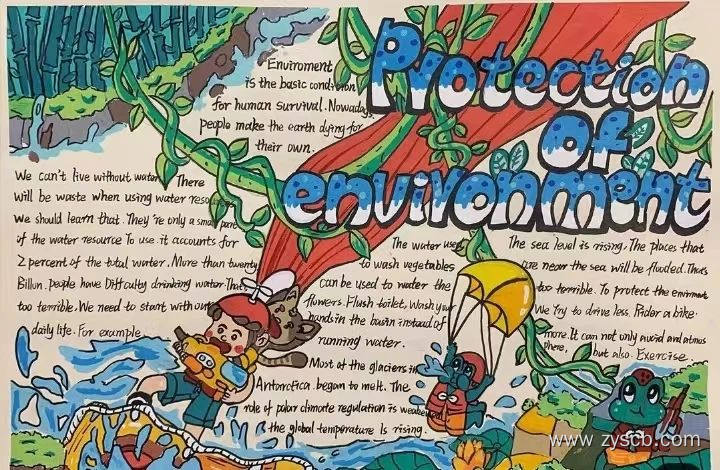 Protection
of
environment
Enviroment
is the basic condition
for human survival. Nowadays,
people make the earth dying for
their own.
We can't live without water. There
will be waste when using water resources
We should learn that. They're only a small part
of the water resource To use it accounts for
2 percent of the total water. More than twenty
Billon. people have Difficulty drinking water. That
too terrible. We need to start without
daily life. For example
The water used
to wash vegetables
can be used to water the
flowers. Flush toilet, Wash your
hands in the basin instead of
running water.
Most of the glaciers in
Antarctica began to melt. The
role of polar climate regulation is weakened
the global temperature Is rising.
The sea level is rising. The places that
are near the sea will be flooded. That's
too terrible. To protect the enviroment
We try to drive less. Rider a bike
more. It can not only avoid and atmos
phere, but also. Exercise.
www.zyscb.com